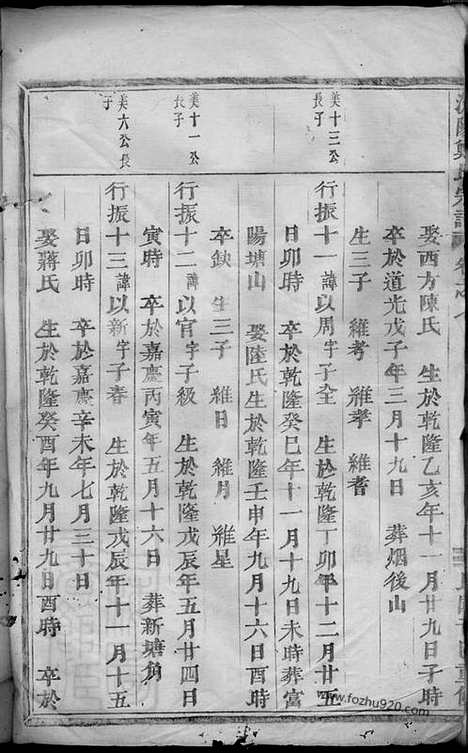 娶西方陳氏　生於乾隆乙亥年十一月廿九日子時
卒於道光戊子年三月十九日　葬烟後山
生三子　維考　維孝　維耆
美十三公長子
行振十一諱以周字子全　生於乾隆丁卯年十二月廿五
日卯時　卒於乾隆癸巳年十一月十九日未時葬富
陽塘山　娶陸氏生於乾隆壬申年九月十六日酉時
卒缺　生三子　維日　維月　維星
美十一公長子
行振十二諱以官字子級　生於乾隆戊辰年五月廿四日
寅時　卒於嘉慶丙寅年五月十六日　葬新塘角
美六公長子
行振十三諱以新字子春　生於乾隆戊辰年十一月十五
日卯時　卒於嘉慶辛未年七月三十日
娶蔣氏　生於乾隆癸酉年九月廿九日酉時　卒於
www.fozhu920.com